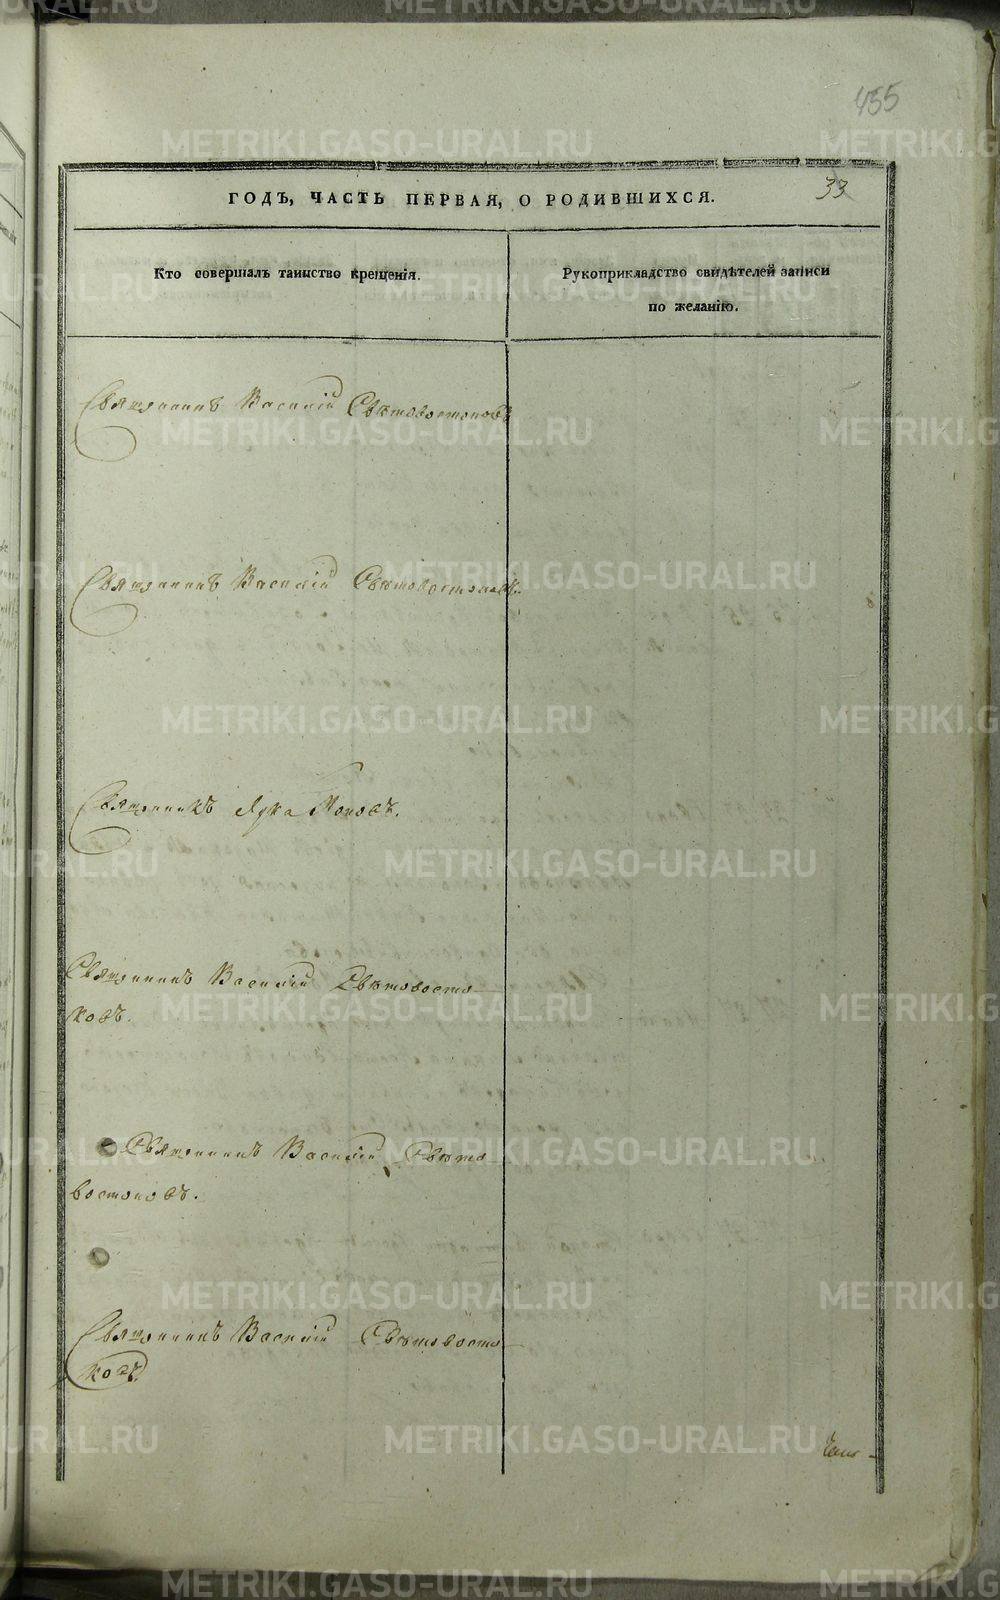 455
33
ГОДЪ, ЧАСТЬ ПЕРВАЯ, О РОДИВШИХСЯ.
Кто совершалъ таинство крещенія.
Рукоприкладство свидѣтелей записи
по желанію.
Священникъ Василій Свѣтовостоковъ
Священникъ Василій Свѣтовостоковъ.
Священникъ Лука Поповъ.
Священникъ Василій Свѣтовосто-
ковъ.
Священникъ Василій Свѣто
востоковъ.
Священникъ Василій Свѣтовосто-
ковъ.
METRIKI.GASO-URAL.RU